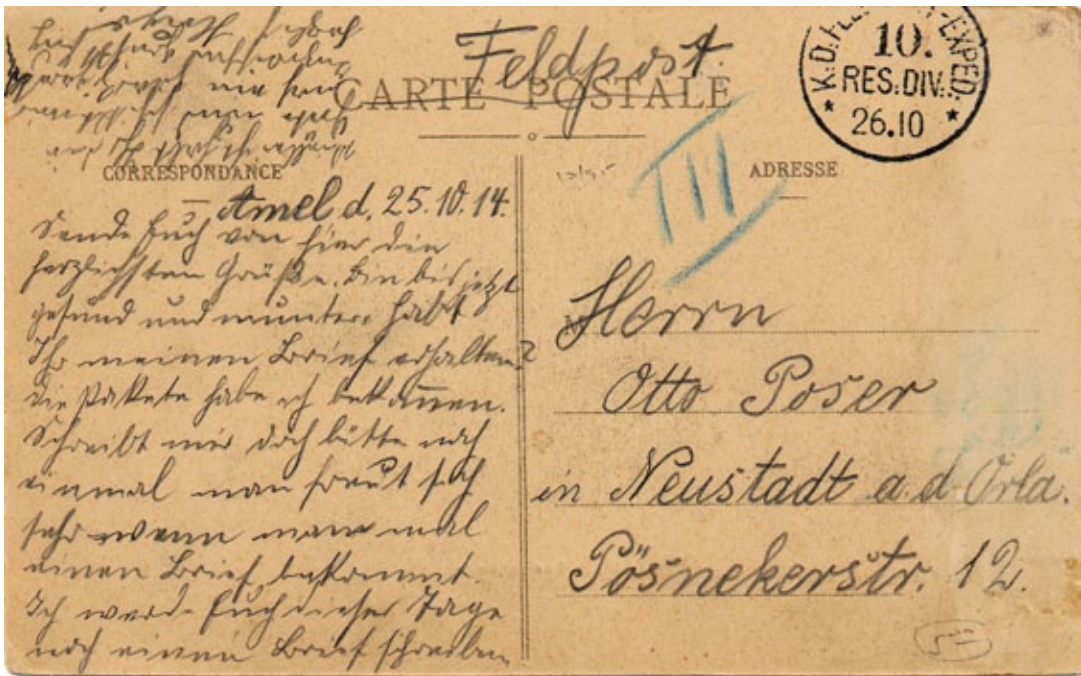 Feldpost.
CARTE POSTALE
K.D. FEL EXPED.
10.
RES. DIV.
26.10
CORRESPONDANCE
ADRESSE
III
Amel d. 25.10.14.
Sende Euch von hier die
herzlichsten Grüße. Bin bis jetzt
gesund und munter. Habt
Ihr meinen Brief erhalten?
Die Pakete habe ich bekommen.
Schreibt mir doch bitte noch
einmal man freut sich
sehr wenn man mal
einen Brief bekommt.
Ich werde Euch dieser Tage
noch einen Brief schreiben
Herrn
Otto Poser
in Neustadt a. d. Orla.
Pösnekerstr. 12.